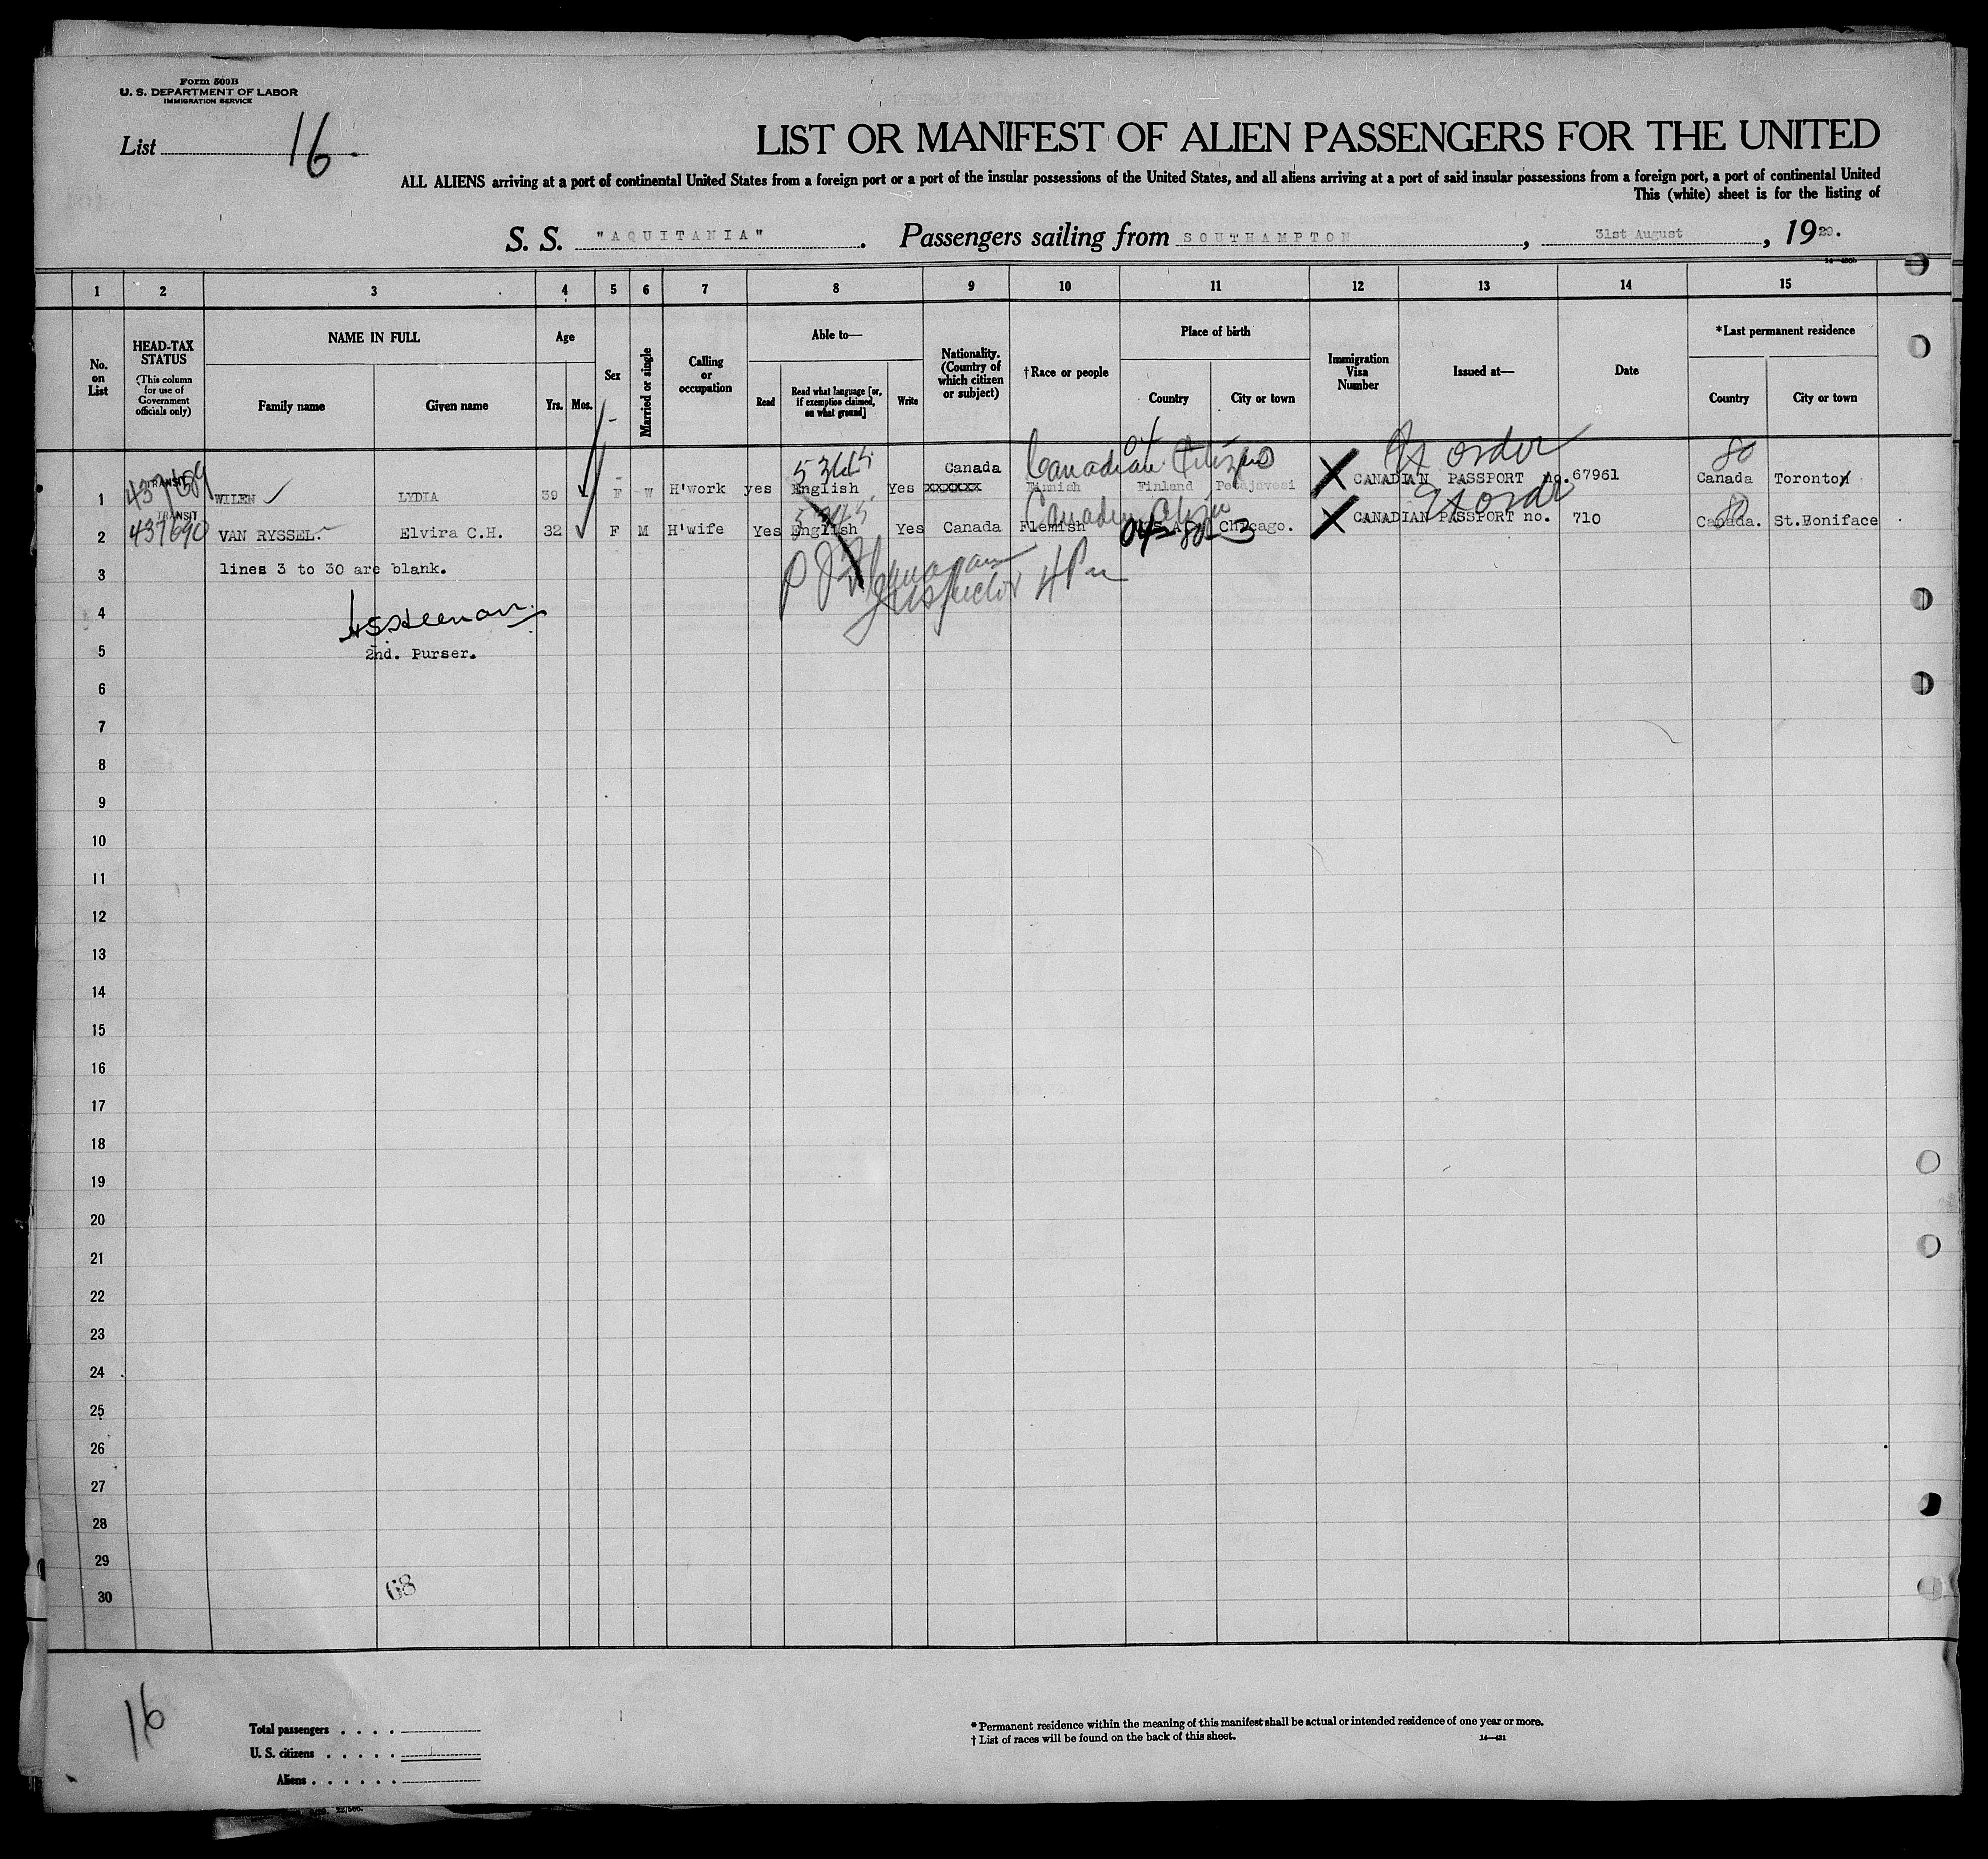 Form 500B
U. S. DEPARTMENT OF LABOR
IMMIGRATION SERVICE
List 16
LIST OR MANIFEST OF ALIEN PASSENGERS FOR THE UNITED
ALL ALIENS arriving at a port of continental United States from a foreign port or a port of the insular possessions of the United States, and all aliens arriving at a port of said insular possessions from a foreign port, a port of continental United
This (white) sheet is for the listing of
S. S. "AQUITANIA". Passengers sailing from SOUTHAMPTON, 31st August, 1929.
1 2 3 4 5 6 7 8 9 10 11 12 13 14 15
No. on List
HEAD-TAX STATUS
(This column for use of Government officials only)
NAME IN FULL
Family name
Given name
Age
Yrs. Mos.
Sex
Married or single
Calling or occupation
Able to—
Read
Read what language [or, if exemption claimed, on what ground]
Write
Nationality. (Country of which citizen or subject)
†Race or people
Place of birth
Country
City or town
Immigration Visa Number
Issued at—
Date
*Last permanent residence
Country
City or town
Canada Canadian Citizen 04 Ex order 80
1 TRANSIT WILEN LYDIA 39 F W H'work yes English Yes xxxxxxx Finnish Finland Petajavesi X CANADIAN PASSPORT no. 67961 Canada Toronto
2 TRANSIT 437690 VAN RYSSEL. Elvira C.H. 32 F M H'wife Yes English Yes Canada Flemish Chicago. X CANADIAN PASSPORT no. 710 Canada. St.Boniface
3 lines 3 to 30 are blank.
Inspector
4
5 2nd. Purser.
6
7
8
9
10
11
12
13
14
15
16
17
18
19
20
21
22
23
24
25
26
27
28
29
30
68
16
Total passengers . . . .
U. S. citizens . . . . .
Aliens . . . . . .
* Permanent residence within the meaning of this manifest shall be actual or intended residence of one year or more.
† List of races will be found on the back of this sheet.
14—421